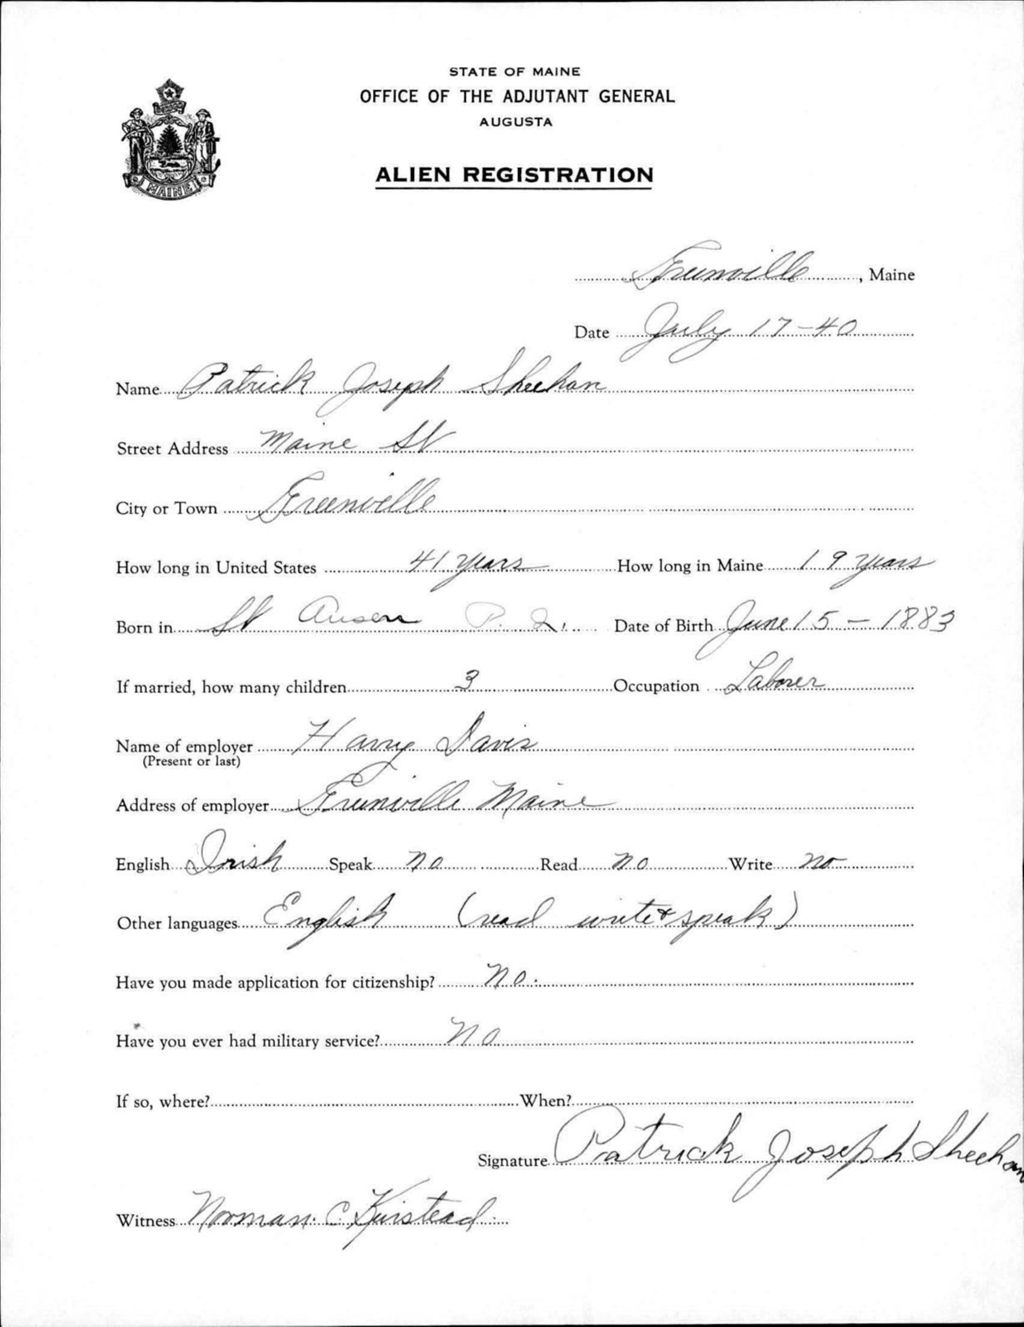 STATE OF MAINE
OFFICE OF THE ADJUTANT GENERAL
AUGUSTA
ALIEN REGISTRATION
MAINE
Greenville, Maine
Date July 17-40
Name Patrick Joseph Sheehan
Street Address Maine St
City or Town Greenville
How long in United States 41 years How long in Maine 19 years
Born in St P. Q. Date of Birth June 15 - 1883
If married, how many children 3 Occupation Laborer
Name of employer Harry Davis
(Present or last)
Address of employer Greenville Maine
English Irish Speak no Read no Write no
Other languages English (read write & speak)
Have you made application for citizenship? No.
Have you ever had military service? No
If so, where? When?
Signature Patrick Joseph Sheehan
Witness Norman C.